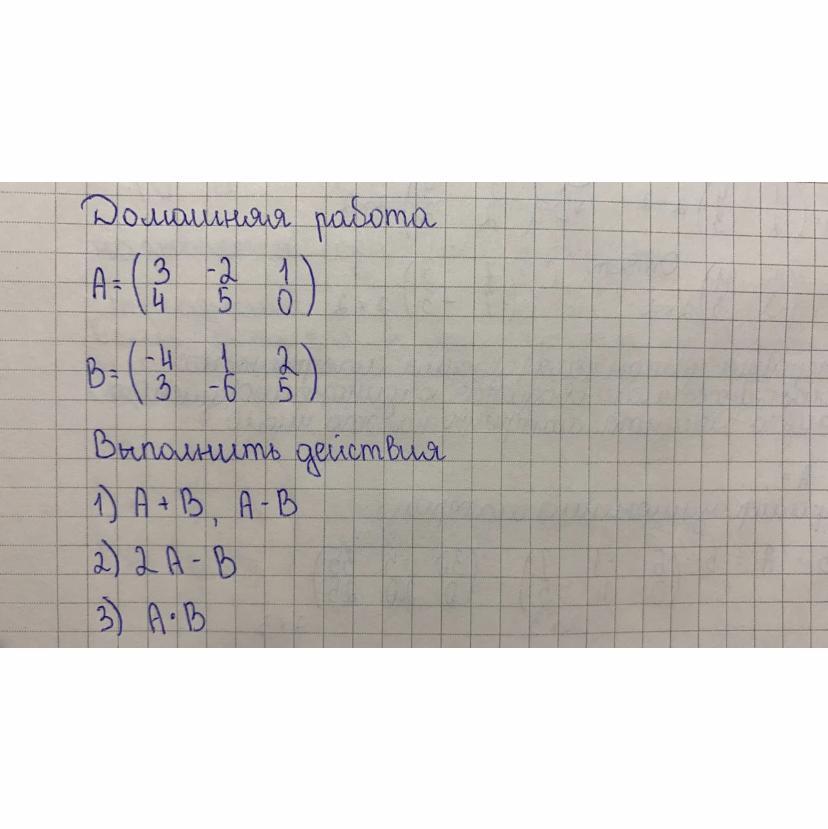 Домашняя работа
A = ( 3 -2 1
4 5 0 )
B = ( -4 1 2
3 -6 5 )
Выполнить действия
1) A + B, A - B
2) 2A - B
3) A · B